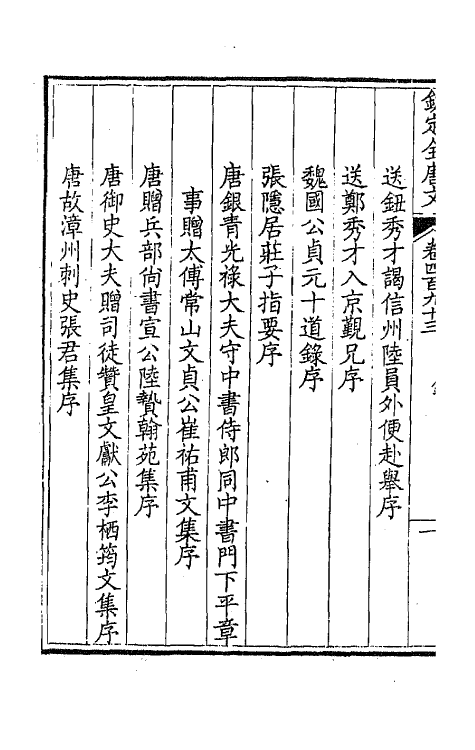 欽定全唐文
卷四百九十三
一
送鈕秀才謁信州陸員外便赴舉序
送鄭秀才入京覲兄序
魏國公貞元十道錄序
張隱居莊子指要序
唐銀青光祿大夫守中書侍郎同中書門下平章
事贈太傅常山文貞公崔祐甫文集序
唐贈兵部尚書宣公陸贄翰苑集序
唐御史大夫贈司徒贊皇文獻公李栖筠文集序
唐故漳州刺史張君集序